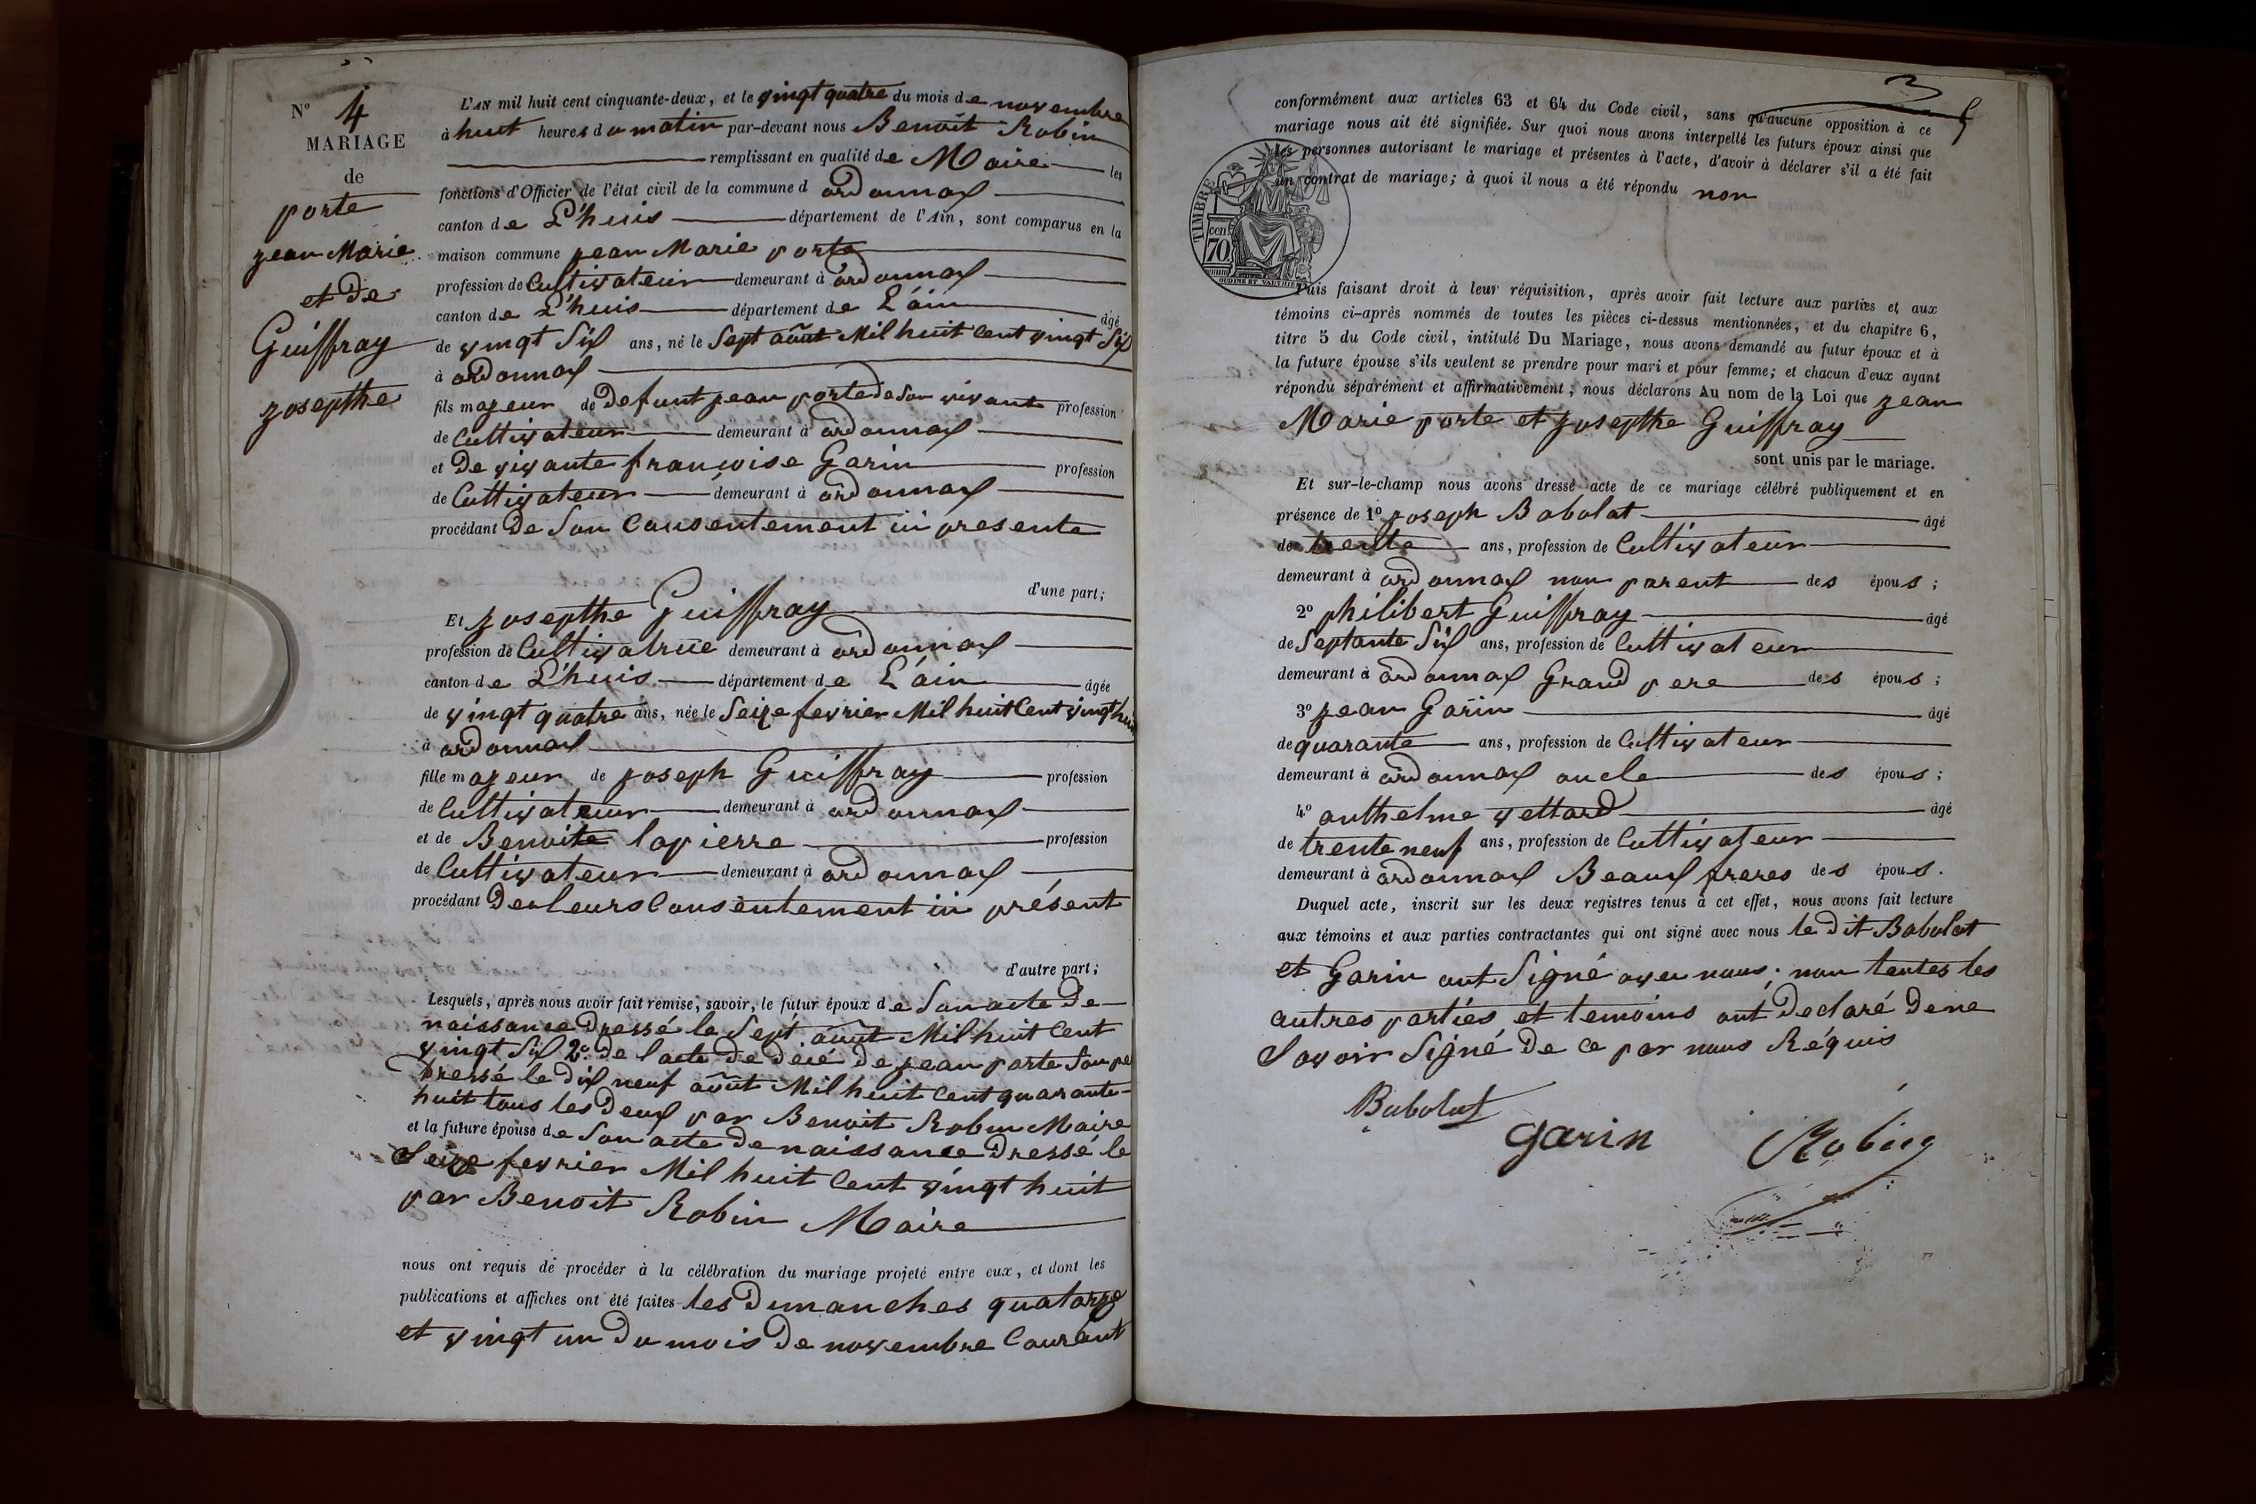 N° 4
MARIAGE
de
porte
jean Marie
et de
Guiffray
josepthe
L'AN mil huit cent cinquante-deux, et le vingt quatre du mois de novembre
à huit heures du matin par-devant nous Benoit Robin
remplissant en qualité de Maire les
fonctions d'Officier de l'état civil de la commune d ordonnax
canton de L'huis département de l'Ain, sont comparus en la
maison commune jean Marie porte
profession de Cultivateur demeurant à ordonnax
canton de L'huis département de L'ain âgé
de vingt Six ans, né le Sept août Mil huit Cent vingt Six
à ordonnax
fils majeur de Defunt jean porte de Son vivant profession
de Cultivateur demeurant à ordonnax
et De vivante françoise Garin profession
de Cultivateur demeurant à ordonnax
procédant De Son Consentement ici presente
d'une part;
Et josepthe Guiffray
profession de Cultivatrice demeurant à ordonnax
canton de L'huis département de L'ain âgée
de vingt quatre ans, née le Seize fevrier Mil huit Cent vingt huit
à ordonnax
fille majeur de joseph Guiffray profession
de Cultivateur demeurant à ordonnax
et de Benoite lapierre profession
de Cultivateur demeurant à ordonnax
procédant De leurs Consentement ici présent
d'autre part;
Lesquels, après nous avoir fait remise, savoir, le futur époux de Son acte de
naissance Dressé le Sept août Mil huit Cent
vingt Six 2° De l'acte De décé De jean porte Son pe
Dressé le Dix neuf août Mil huit Cent quarante-
huit tous les Deux par Benoit Robin Maire
et la future épouse de Son acte De naissance Dressé le
Seize fevrier Mil huit Cent vingt huit
par Benoit Robin Maire
nous ont requis de procéder à la célébration du mariage projeté entre eux, et dont les
publications et affiches ont été faites les Dimanches quatorze
et vingt un Du mois De novembre Courant
3
conformément aux articles 63 et 64 du Code civil, sans qu'aucune opposition à ce
mariage nous ait été signifiée. Sur quoi nous avons interpellé les futurs époux ainsi que
les personnes autorisant le mariage et présentes à l'acte, d'avoir à déclarer s'il a été fait
un contrat de mariage; à quoi il nous a été répondu non
TIMBRE
cen.
70
OUDINE ET VAUTHIER
Puis faisant droit à leur réquisition, après avoir fait lecture aux parties et aux
témoins ci-après nommés de toutes les pièces ci-dessus mentionnées, et du chapitre 6,
titre 5 du Code civil, intitulé Du Mariage, nous avons demandé au futur époux et à
la future épouse s'ils veulent se prendre pour mari et pour femme; et chacun d'eux ayant
répondu séparément et affirmativement, nous déclarons Au nom de la Loi que jean
Marie porte et josepthe Guiffray
sont unis par le mariage.
Et sur-le-champ nous avons dressé acte de ce mariage célébré publiquement et en
présence de 1° joseph Babolat âgé
de trente ans, profession de Cultivateur
demeurant à ordonnax non parent des épous;
2° philibert Guiffray âgé
de Septante Six ans, profession de Cultivateur
demeurant à ordonnax Grand pere des épous;
3° jean Garin âgé
de quarante ans, profession de Cultivateur
demeurant à ordonnax oncle des épous;
4° anthelme vettard âgé
de trente neuf ans, profession de Cultivateur
demeurant à ordonnax Beaux freres des épous.
Duquel acte, inscrit sur les deux registres tenus à cet effet, nous avons fait lecture
aux témoins et aux parties contractantes qui ont signé avec nous le Dit Babolat
et Garin ont Signé avec nous. non toutes les
autres partiés et temoins ont Declaré De ne
Savoir Signé De ce par nous Réquis
Babolat
garin
Robin